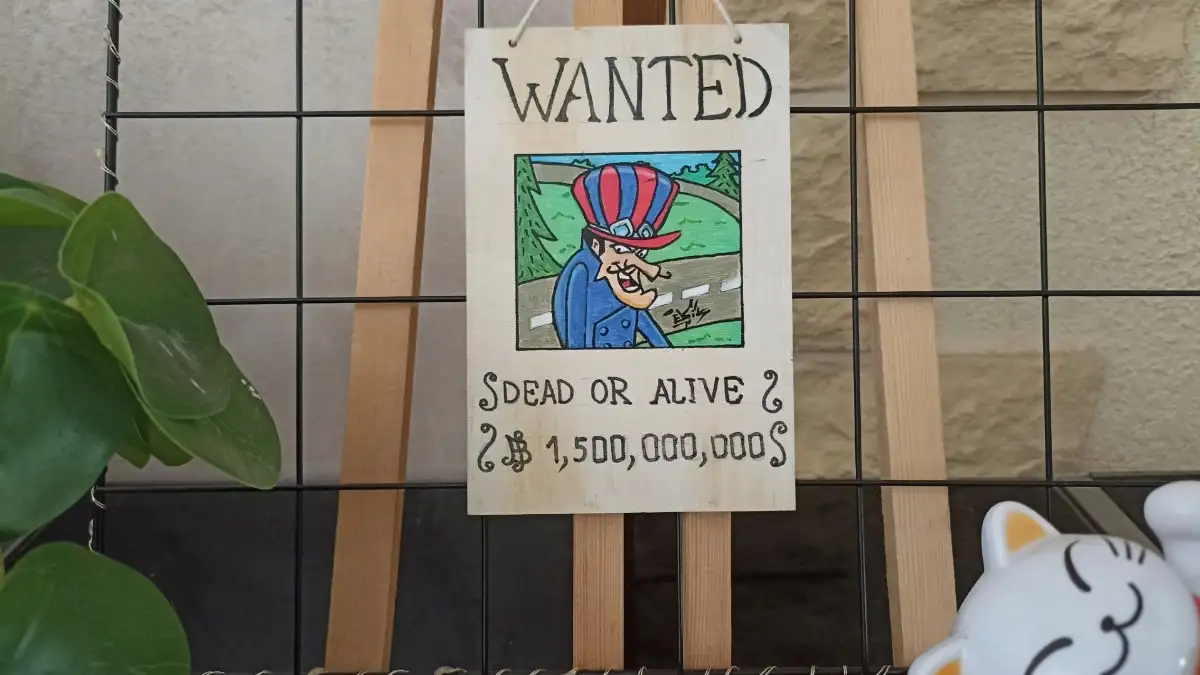 WANTED
DEAD OR ALIVE
฿ 1,500,000,000